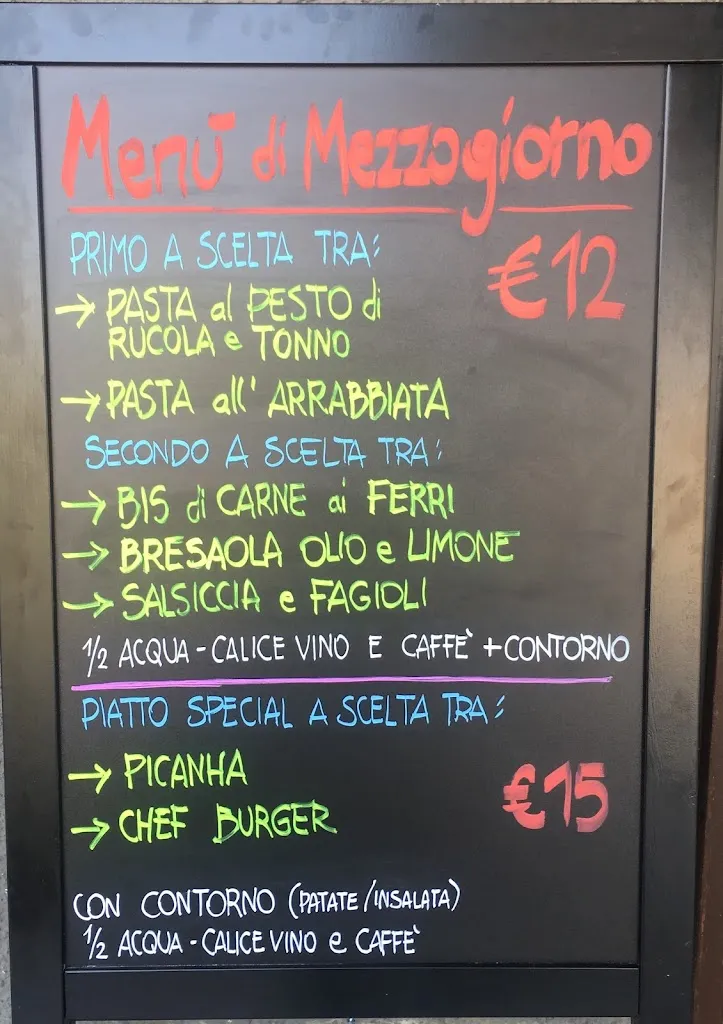 Menù di Mezzogiorno
PRIMO A SCELTA TRA:
€12
→ PASTA al PESTO di
RUCOLA e TONNO
→ PASTA all' ARRABBIATA
SECONDO A SCELTA TRA:
→ BIS di CARNE ai FERRI
→ BRESAOLA OLIO e LIMONE
→ SALSICCIA e FAGIOLI
1/2 ACQUA - CALICE VINO E CAFFÈ + CONTORNO
PIATTO SPECIAL A SCELTA TRA:
→ PICANHA
€15
→ CHEF BURGER
CON CONTORNO (PATATE/INSALATA)
1/2 ACQUA - CALICE VINO e CAFFÈ